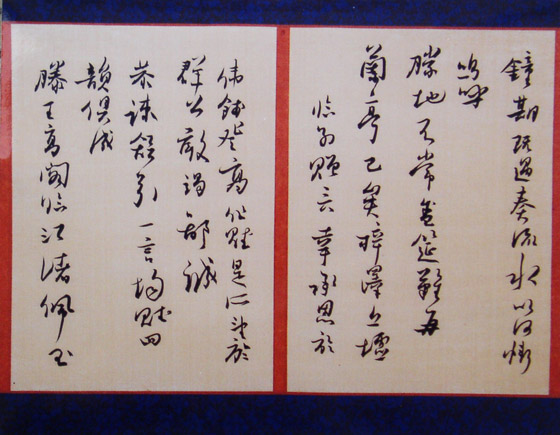 鐘期既遇奏流水以何慚
嗚呼
勝地不常盛筵難再
蘭亭已矣梓澤丘墟
臨別贈言幸承恩於
偉餞登高作賦是所望於
群公敢竭鄙誠
恭疏短引一言均賦四
韻俱成
滕王高閣臨江渚佩玉